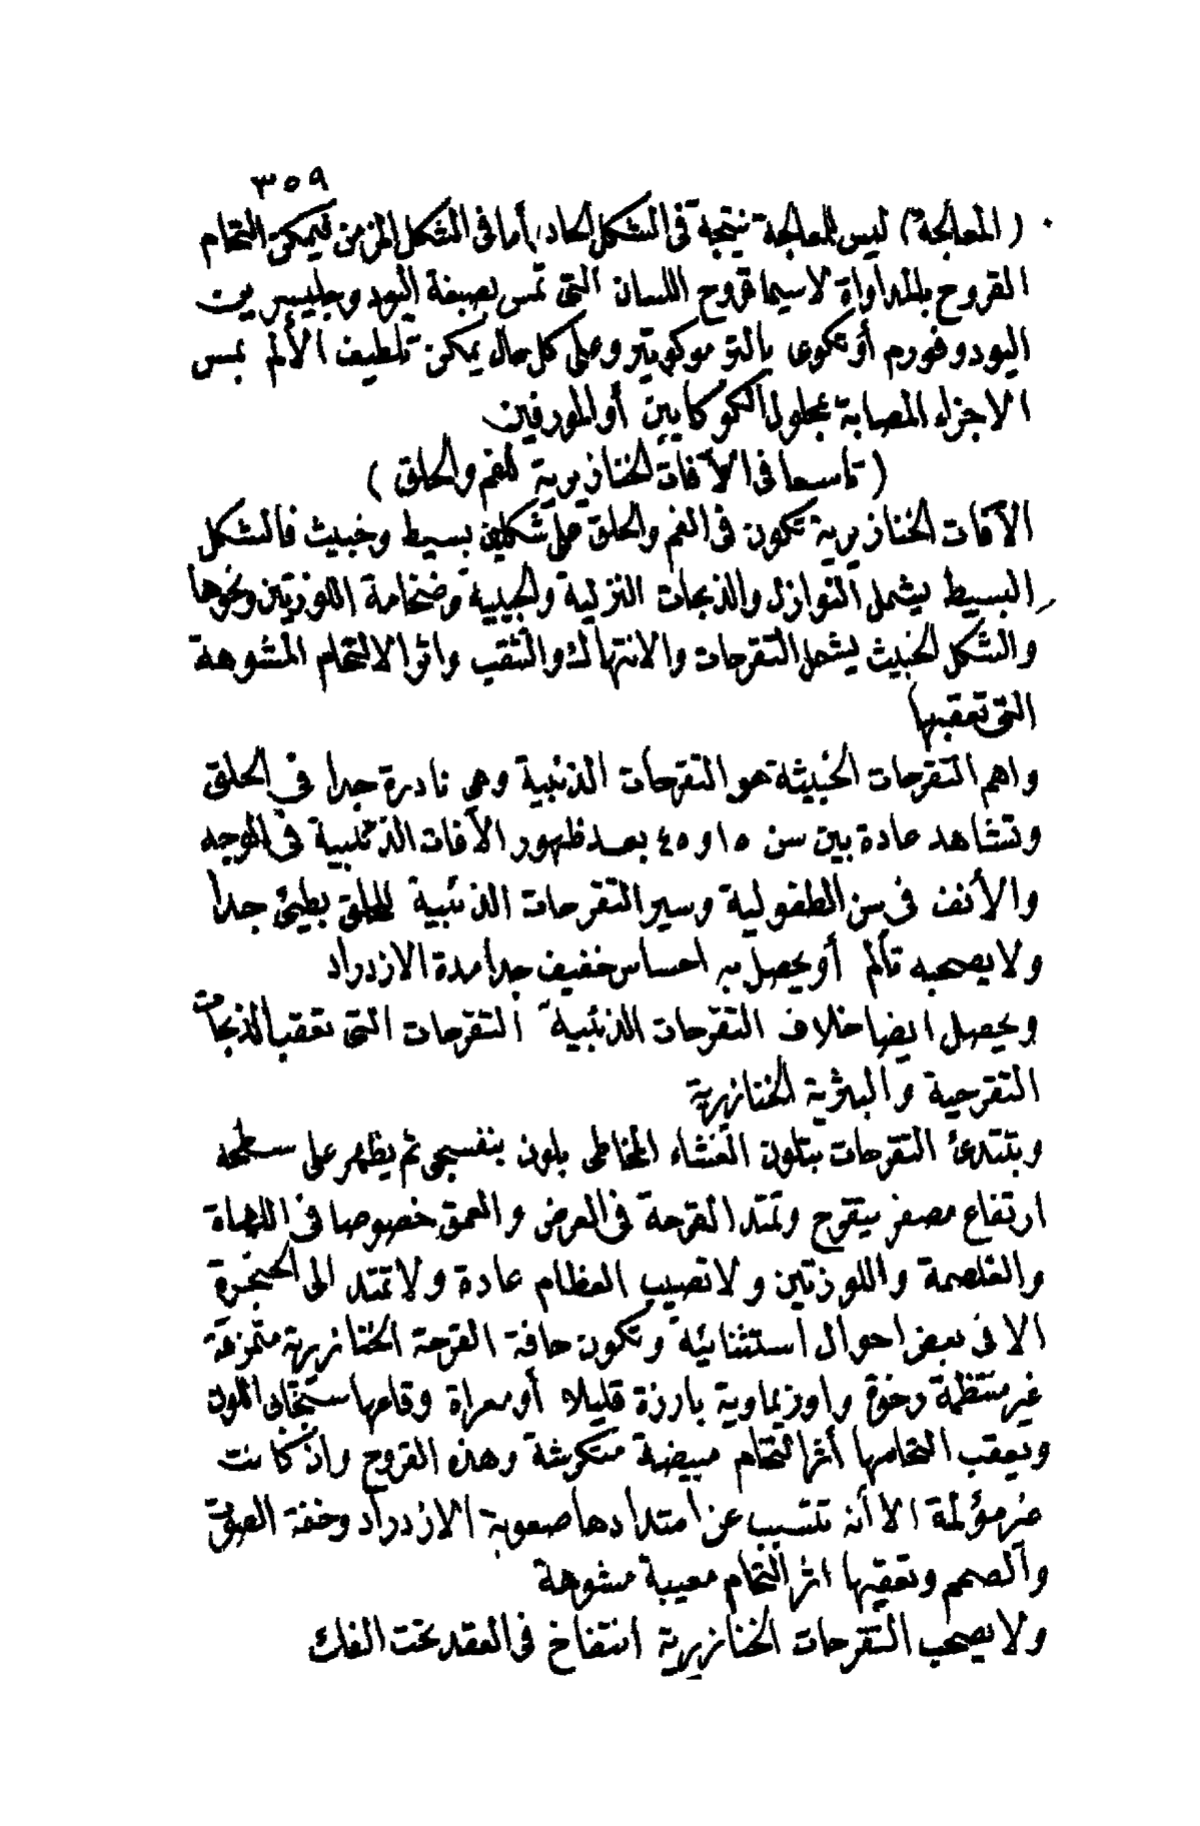 ٣٥٩
( المعالجة ) ليس للمعالجة نتيجة فى الشكل الحاد، أما فى الشكل المزمن فيمكن التحام
القروح بالمداواة لاسيما قروح اللسان التى تمس بصبغة اليود وجليسيريت
اليودوفورم أو تكوى بالترموكوتير وعلى كل حال يمكن تلطيف الألم بمس
الاجزاء المصابة بمحلول الكوكايين أو المورفين
( تاسعا فى الآفات الخنازيرية للفم والحلق )
الآفات الخنازيرية تكون فى الفم والحلق على شكلين بسيط وخبيث فالشكل
البسيط يشمل النوازل والذبحات النزلية والحبيبية وضخامة اللوزتين ونحوها
والشكل الخبيث يشمل التقرحات والانتهاك والثقب واثر الالتحام المشوهة
التى تعقبها
واهم التقرحات الخبيثة هو التقرحات الذئبية وهى نادرة جدا فى الحلق
وتشاهد عادة بين سن ١٥ و ٤٥ بعد ظهور الآفات الذئبية فى الوجه
والأنف فى سن الطفولية وسير التقرحات الذئبية للحلق بطيئ جدا
ولا يصحبه تألم أو يحصل به احساس خفيف جدا مدة الازدراد
ويحصل ايضا خلاف التقرحات الذئبية التقرحات التى تعقب الذبحات
التقرحية والبثرية الخنازيرية
وتبتدئ التقرحات بتلون الغشاء المخاطى بلون بنفسجى ثم يظهر على سطحه
ارتفاع مصفر يتقرح وتمتد القرحة فى العرض والعمق خصوصا فى اللهاة
والغلصمة واللوزتين ولا تصيب العظام عادة ولا تمتد الى الحنجرة
الا فى بعض احوال استثنائية وتكون حافة القرحة الخنازيرية متمزقة
غير منتظمة رخوة واوزيماوية بارزة قليلا أو معراة وقاعها سنجابى اللون
ويعقب التحامها أثر التحام مبيضة متكرشة وهذه القروح وان كانت
غير مؤلمة الا أنه تتسبب عن امتدادها صعوبة الازدراد وخفة الصوت
والصمم وتعقبها اثر التحام معيبة مشوهة
ولا يصحب التقرحات الخنازيرية انتفاخ فى العقد تحت الفك